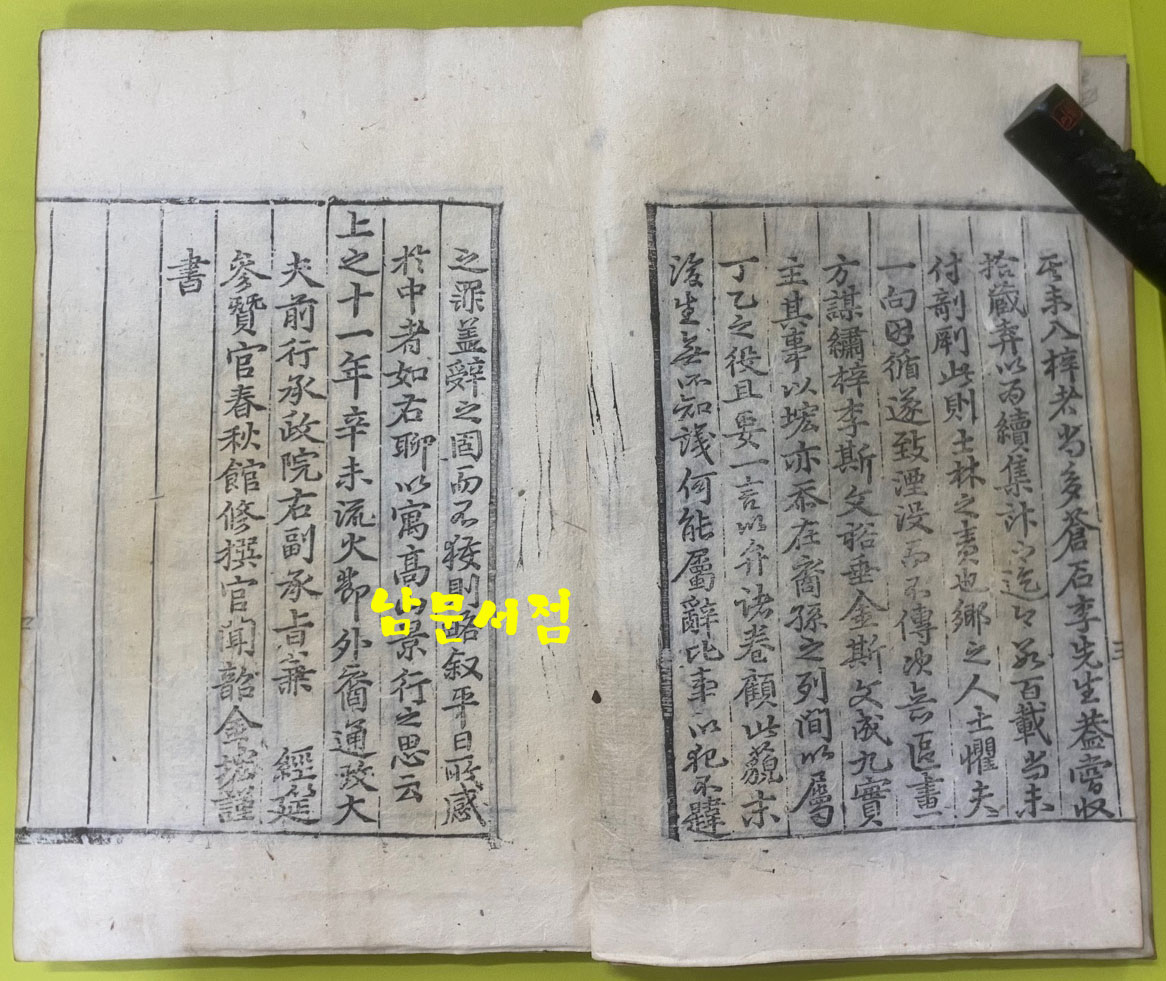 其未入梓者尚多蒼石李先生盖嘗收
拾藏弆以爲續集計而迄今數百載尚未
付剞劂此則士林之責也鄕之人士懼夫
一向因循遂致湮没而不傳次善區畫
方謀繡梓李斯文 垂金斯文成九實
主其事以㙆亦忝在裔孫之列間以屬
丁乙之役且要一言以弁諸卷顧此藐末
後生無所知識何能屬辭比事以犯不韙
之罪盖辭之固而不獲則略叙平日所感
於中者如右聊以寓高山景行之思云
上之十一年辛未流火節外裔通政大
夫前行承政院右副承旨兼 經筵
參贊官春秋館修撰官聞韶金㙆謹
書
三
남문서점